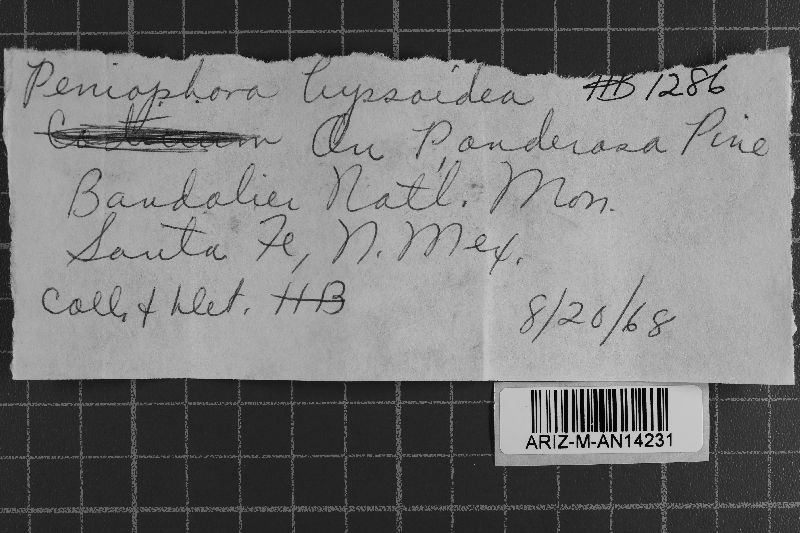 Peniophora byssoidea HB 1286
On Ponderosa Pine
Bandalier Natl. Mon.
Santa Fe, N. Mex.
Coll. & Det. HB
8/20/68
ARIZ-M-AN14231